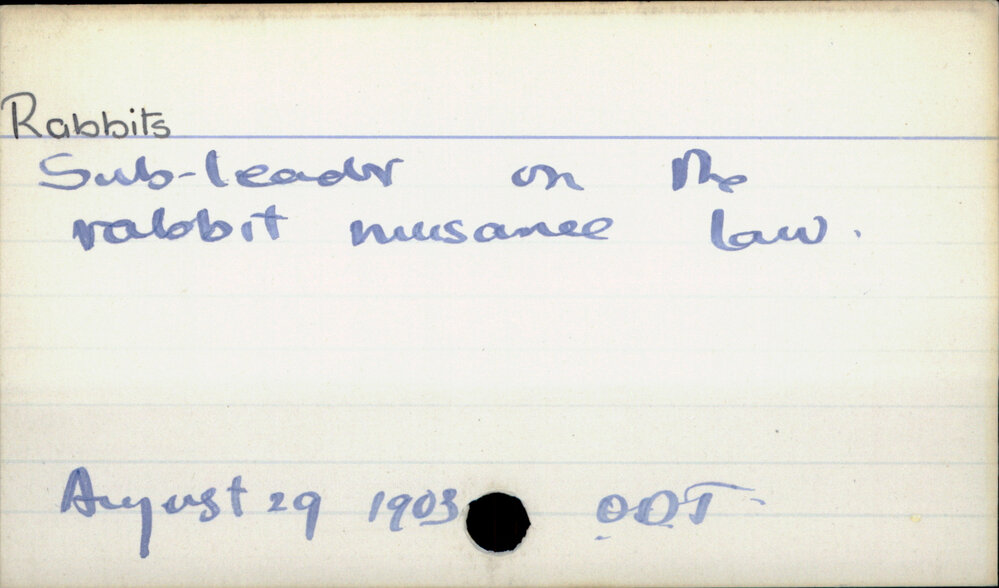 Rabbits
Sub-leader on the
rabbit nuisance law.
August 29 1903 ODT